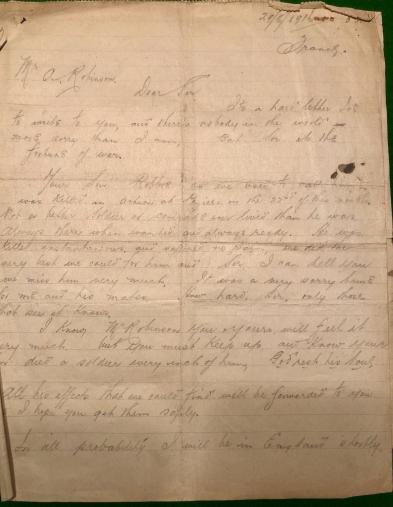 France.
Mr A. Robinson.
Dear Sir
It's a hard letter for
to write to you, and there's nobody in the world
more sorry than I am, but Sir it's the
fortunes of war.
Your Son as we used to call him
was killed in action at on the of this month
Not a better soldier or comrade ever lived than he was
always there when wanted and always ready. He was
killed and we did the
very best we could for him and Sir I can tell you
we miss him very much, It was a very sorry
for me and his mates. how hard, Sir, only those
that see it know.
I know Mr Robinson you & yours will feel it
very much but you must keep up, and know your
son died a soldier every inch of him, God rest his soul.
All his effects that we could find will be forwarded to you
I hope you get them safely.
In all probability I will be in England shortly,